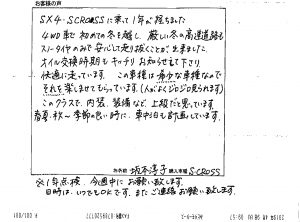 お客様の声
SX4・SCROSSに乗って1年が経ちました
4WD車と初めての冬を越し、厳しい冬の高速道路も
スノータイヤのみで安心して走り抜くことが出来ました。
オイル交換時期もキッチリお知らせして下さり
快適に乗っています この車種は希少な車種なので
それを楽しませてもらっています。(人からよくジロジロ見られます)
このクラスで、内装、装備など、上級だと思っています。
春、夏、秋〜季節の良い時に、車中泊も計画しています。
お名前 坂本淳子 購入車種 S-CROSS
※1年点検、今週中にお願い致します。
日時は、いつでもOKです。またご連絡お願い致します。